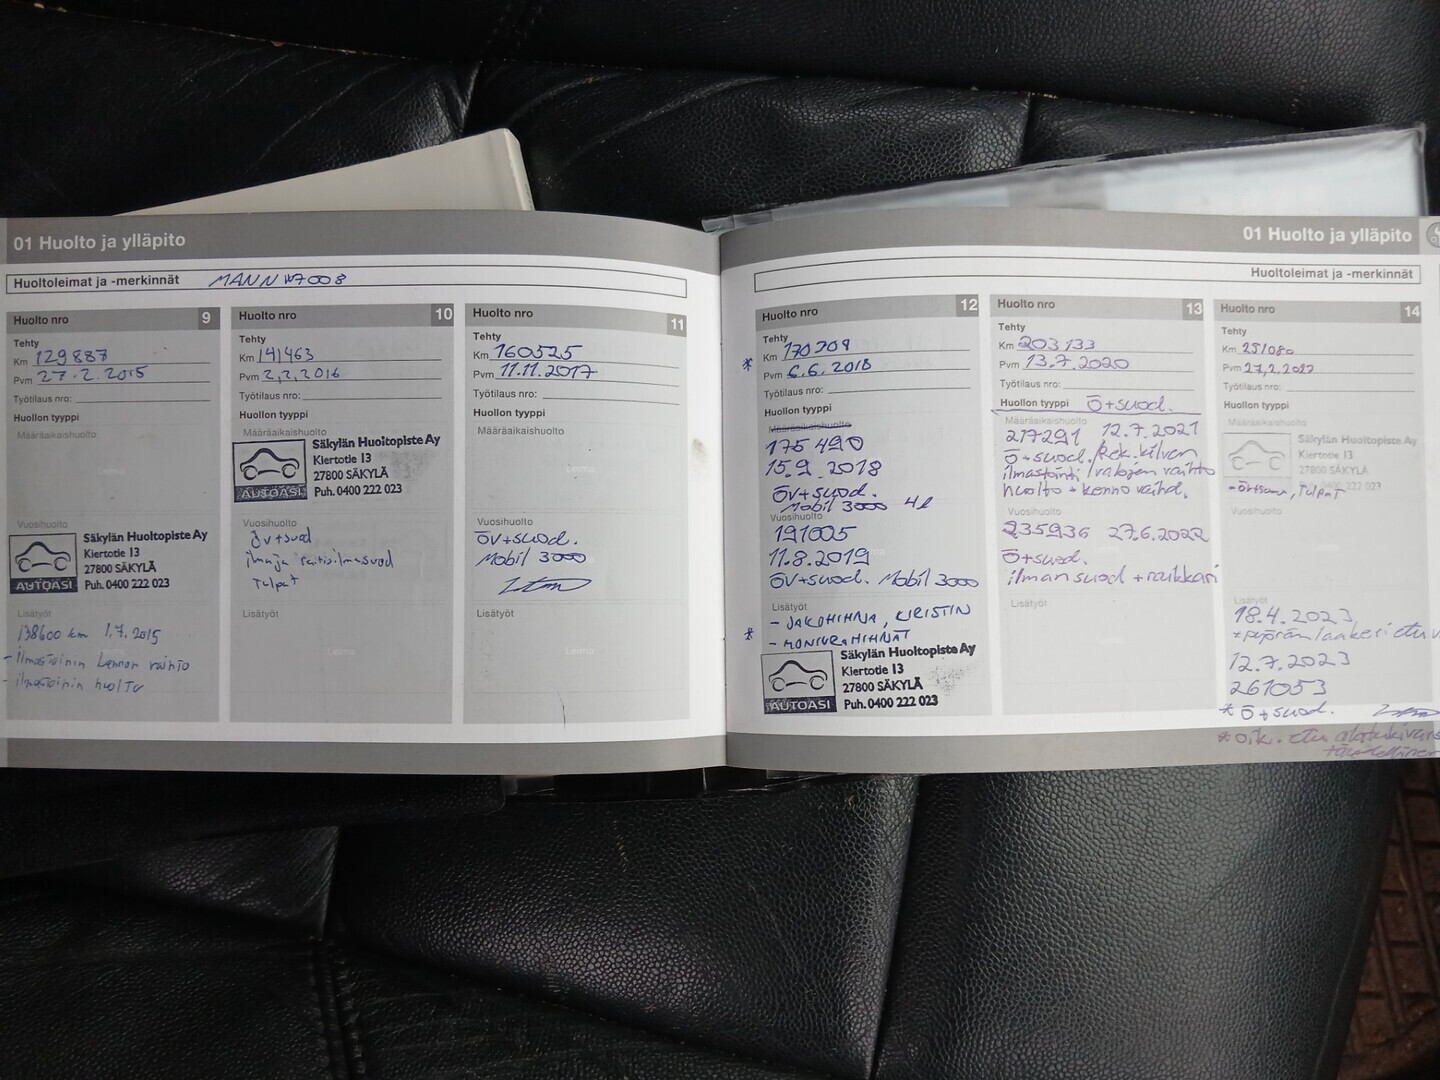 01 Huolto ja ylläpito
Huoltoleimat ja -merkinnät MANN W7008
Huolto nro 9
Tehty
Km 129887
Pvm 27.2.2015
Työtilaus nro:
Huollon tyyppi
Määräaikaishuolto
Leima
Vuosihuolto
Säkylän Huoltopiste Ay
Kiertotie 13
27800 SÄKYLÄ
Puh. 0400 222 023
AUTOASI
Lisätyöt
138600 km 1.7.2015
- ilmastoinin Lennon vaihto
- ilmastoinin huolto
Huolto nro 10
Tehty
Km 141463
Pvm 2,2,2016
Työtilaus nro:
Huollon tyyppi
Määräaikaishuolto
Säkylän Huoltopiste Ay
Kiertotie 13
27800 SÄKYLÄ
Puh. 0400 222 023
AUTOASI
Vuosihuolto
öv+suod
ilma ja raitisilmasuod
Tulpat
Lisätyöt
Leima
Huolto nro 11
Tehty
Km 160525
Pvm 11.11.2017
Työtilaus nro:
Huollon tyyppi
Määräaikaishuolto
Leima
Vuosihuolto
öv+suod.
Mobil 3000
Lisätyöt
Leima
01 Huolto ja ylläpito
Huoltoleimat ja -merkinnät
Huolto nro 12
Tehty
* Km 170709
Pvm 6.6.2018
Työtilaus nro:
Huollon tyyppi
Määräaikaishuolto
175490
15.9.2018
öv+suod.
Mobil 3000 4l
Vuosihuolto
191005
11.8.2019
öv+suod. Mobil 3000
Lisätyöt
- JAKOHIHNA, KIRISTIN
* - MONIURAHIHNAT
Säkylän Huoltopiste Ay
Kiertotie 13
27800 SÄKYLÄ
Puh. 0400 222 023
AUTOASI
Huolto nro 13
Tehty
Km 203133
Pvm 13.7.2020
Työtilaus nro:
Huollon tyyppi ö+suod.
Määräaikaishuolto
217291 12.7.2021
ö+suod. / Rek.kilven
ilmastointi / valojen vaihto
huolto + kenno vaihd.
Vuosihuolto
235936 27.6.2022
ö+suod.
ilman suod + raikkari
Lisätyöt
Huolto nro 14
Tehty
Km 251080
Pvm 27,2,2023
Työtilaus nro:
Huollon tyyppi
Määräaikaishuolto
Säkylän Huoltopiste Ay
Kiertotie 13
27800 SÄKYLÄ
Puh. 0400 222 023
Tulpat
Vuosihuolto
Lisätyöt
18.4.2023
12.7.2023
261053
* ö+suod.
* oik. etu